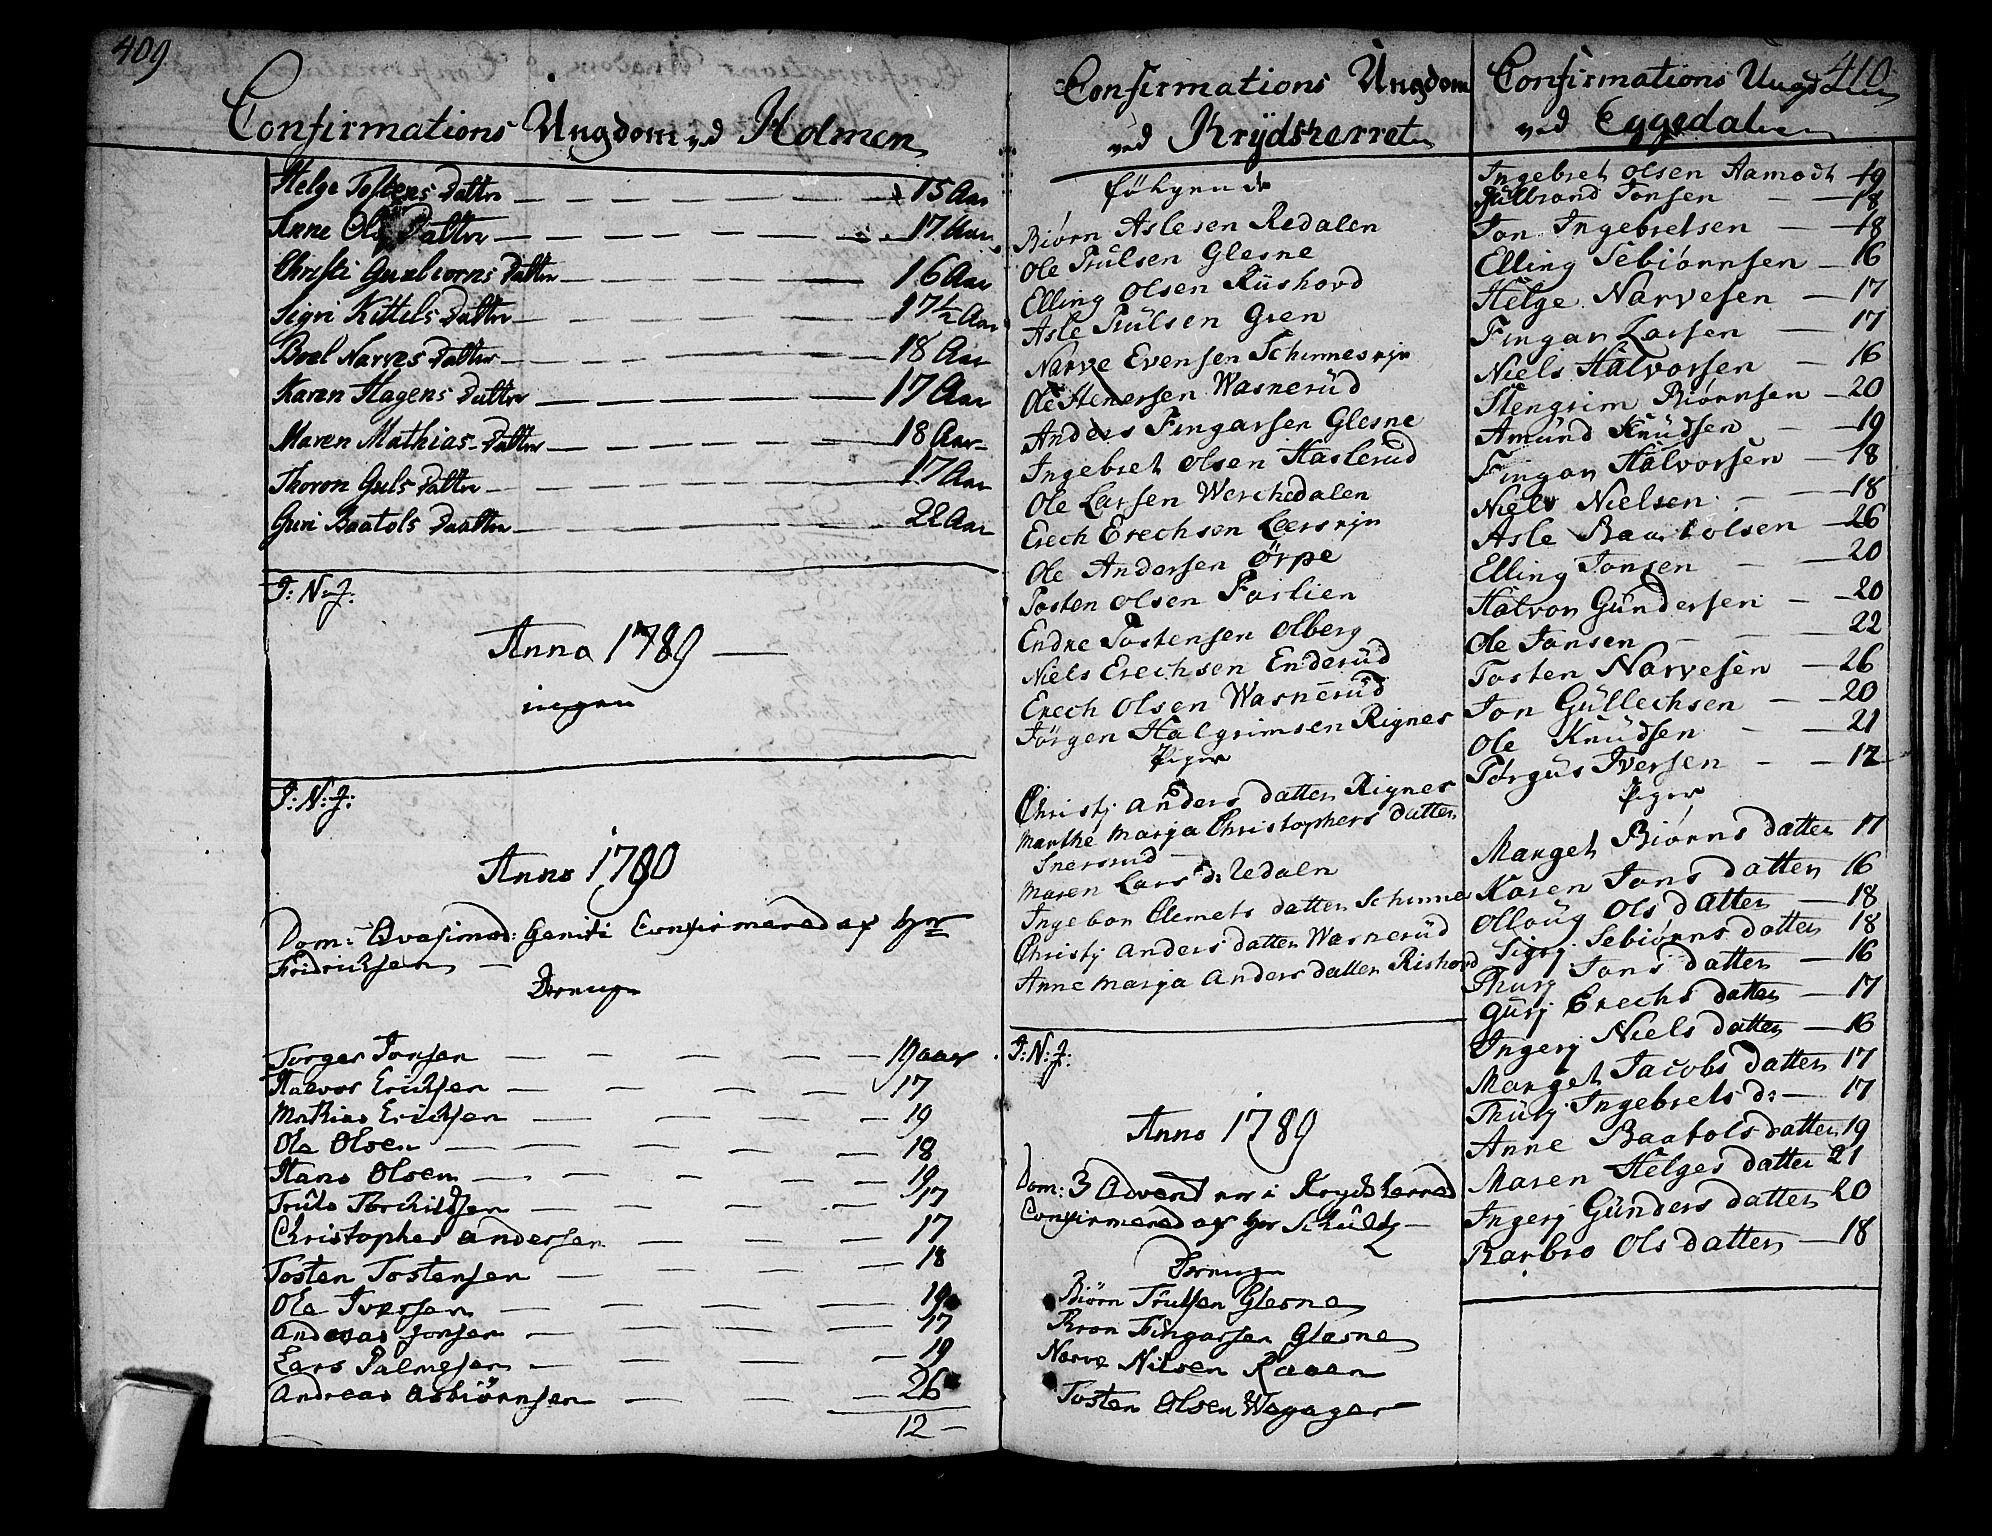 409
Confirmations Ungdom ved Holmen
Helge Tostens Datter 15 Aar
Anne Ols Datter 17 Aar
Christi Gulbrorns Datter 16 Aar
Sigri Kittels Datter 17 1/2 Aar
Boel Narves Datter 18 Aar
Karen Hagens Datter 17 Aar
Maren Mathias-Datter 18 Aar
Thoron Guls Datter 17 Aar
Guri Baatols Daatter 22 Aar
I: N: J:
Anno 1789
ingen
I: N: J:
Anno 1790
Dom: Qvasimod: Geniti Confirmered af Hr
Fridrichsen
Drenge
Torger Jonsen 19 aar
Halvor Erichsen 17
Mathias Erichsen 19
Ole Olsen 18
Hans Olsen 19
Truls Torchildsen 17
Christopher Andersen 17
Tosten Tostensen 18
Ole Iversen 19
Andreas Jonsen 17
Lars Palmesen 19
Andreas Asbiörnsen 26
12
Confirmations Ungdom
ved Krydsherret
Biørn Aslesen Redalen
Ole Trulsen Glesne
Elling Olsen Rüshovd
Asle Trülsen Gren
Narve Evensen Schinnes
Ole Stenersen Wasnerüd
Anders Fingarsen Glesne
Ingebret Olsen Haslerüd
Ole Larsen Werchedalen
Erech Erechsen Leers
Ole Andersen Ørpe
Tosten Olsen Forlien
Endre Tostensen Olberg
Niels Erechsen Enderüd
Erech Olsen Wasnerüd
Jörgen Halgrimsen Rignes
Piger
Christj Anders datter Rignes
Marthe Marja Christophers datter
Snersrud
Maren Lars d: Redalen
Ingebor Clemets datter Schinnes
Christj Anders datter Wasnerüd
Anne Marja Anders datter Rishovd
I: N: J:
Anno 1789
Dom: 3 Advent i Krydsherred
Confirmered af Hr Schultz
Drenge
Biörn Trulsen Glesne
Kron Fingarsen Glesne
Narve Nilsen Raaen
Tosten Olsen
410
Confirmations Ungdom
ved Eggedalen
Ingebret Olsen Aamodt 19
Gulbrand Jonsen 18
Jon Ingebretsen 18
Elling Sebiørnsen 16
Helge Narvesen 17
Fingar Larsen 17
Niels Halvorsen 16
Stengrim Biørnsen 20
Amünd Knüdsen 19
Fingar Halvorsen 18
Niels Nielsen 18
Asle Baartolsen 26
Elling Jonsen 20
Halvor Gündersen 20
Ole Jonsen 22
Tosten Narvesen 26
Jon Güllechsen 20
Ole Knüdsen 21
Torgüs Iversen 17
Piger
Marget Biørns datter 17
Karen Jons datter 16
Olloug Ols datter 18
Sigrj Sebiørns datter 18
Thurj Jons datter 16
Gürj Erechs datter 17
Ingerj Niels datter 16
Marget Jacobs datter 17
Thurj Ingebrets d: 17
Anne Baatols datter 19
Maren Helges datter 21
Ingerj Günders datter 20
Barbro Ols datter 18